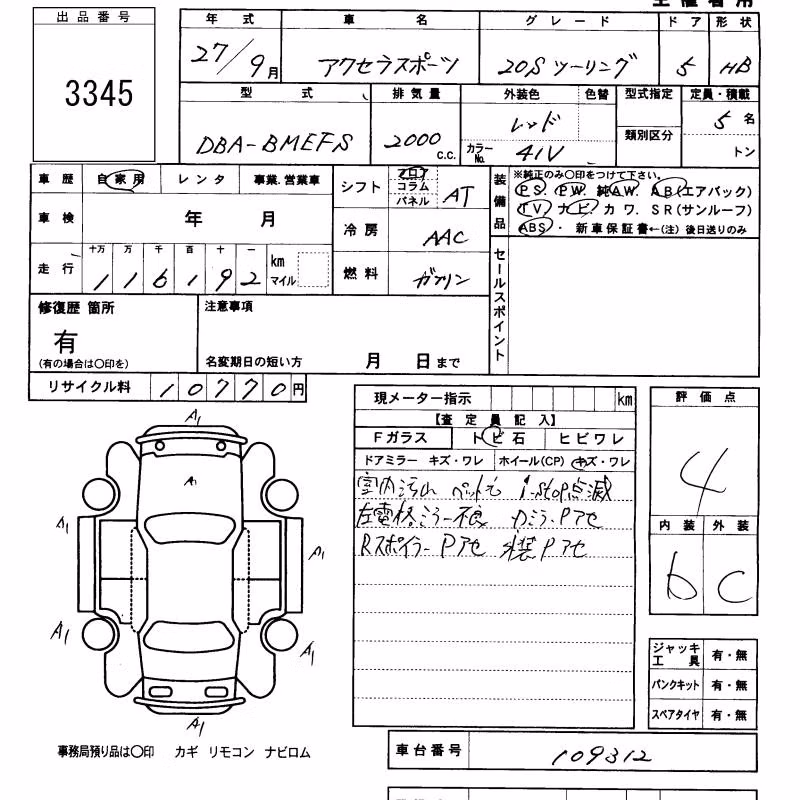 出品番号
3345
年式 車名 グレード ドア 形状
27/9月 アクセラスポーツ 20S ツーリング 5 HB
型式 排気量 外装色 色替 型式指定 定員・積載
DBA-BMEFS 2000 c.c. レッド 類別区分 5名
カラーNo. 41V トン
車歴 自家用 レンタ 事業.営業車
シフト フロア コラム パネル AT
装備品
※純正のみ〇印をつけて下さい。
PS. PW. 純AW. AB(エアバック)
TV ナビ. カワ. SR(サンルーフ)
ABS・ 新車保証書←(注)後日送りのみ
車検 年 月
冷房 AAC
走行 十万 万 千 百 十 一 km マイル
116192
燃料 ガソリン
セールスポイント
修復歴 箇所
有
(有の場合は〇印を)
注意事項
名変期日の短い方 月 日まで
リサイクル料 10770円
現メーター指示 km
【査定員記入】
Fガラス トビ石 ヒビワレ
ドアミラー キズ・ワレ ホイール(CP) キズ・ワレ
室内汚れ ペット毛 i-stop点滅
左電格ミラー不良 カミラーPアセ
Rスポイラー Pアセ 外装Pアセ
評価点
4
内装 外装
b C
A1
A1
A1
A1
A1
A1
A1
ジャッキ工具 有・無
パンクキット 有・無
スペアタイヤ 有・無
事務局預り品は〇印 カギ リモコン ナビロム
車台番号 109312